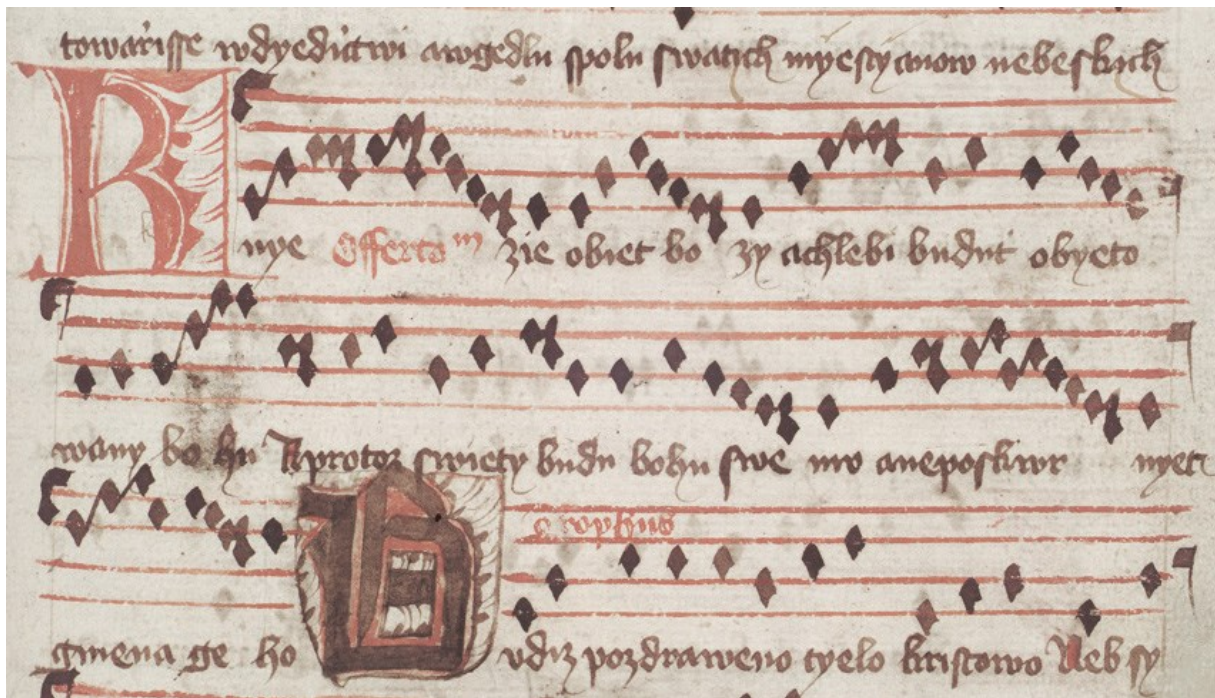 towarisse wdyedictwi awgedlu spolu swatich myestyanow nebeskich
K nye Offerto^m zie obiet bo zy achlebi budut obyeto
wany bo hu Aprotoz swiety budu bohu swe mo aneposkwr nyet
gmena ge ho B udiz pozdraweno tyelo kristowo Neb sy